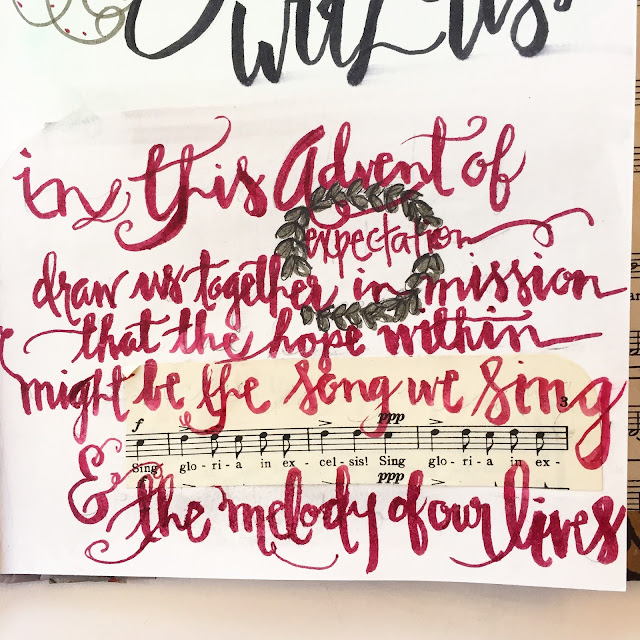 with us
in this Advent of
expectation
draw us together in mission
that the hope within
might be the song we sing
3
f ppp
Sing glo - ri - a in ex - cel - sis! Sing glo - ri - a in ex -
ppp
& the melody of our lives